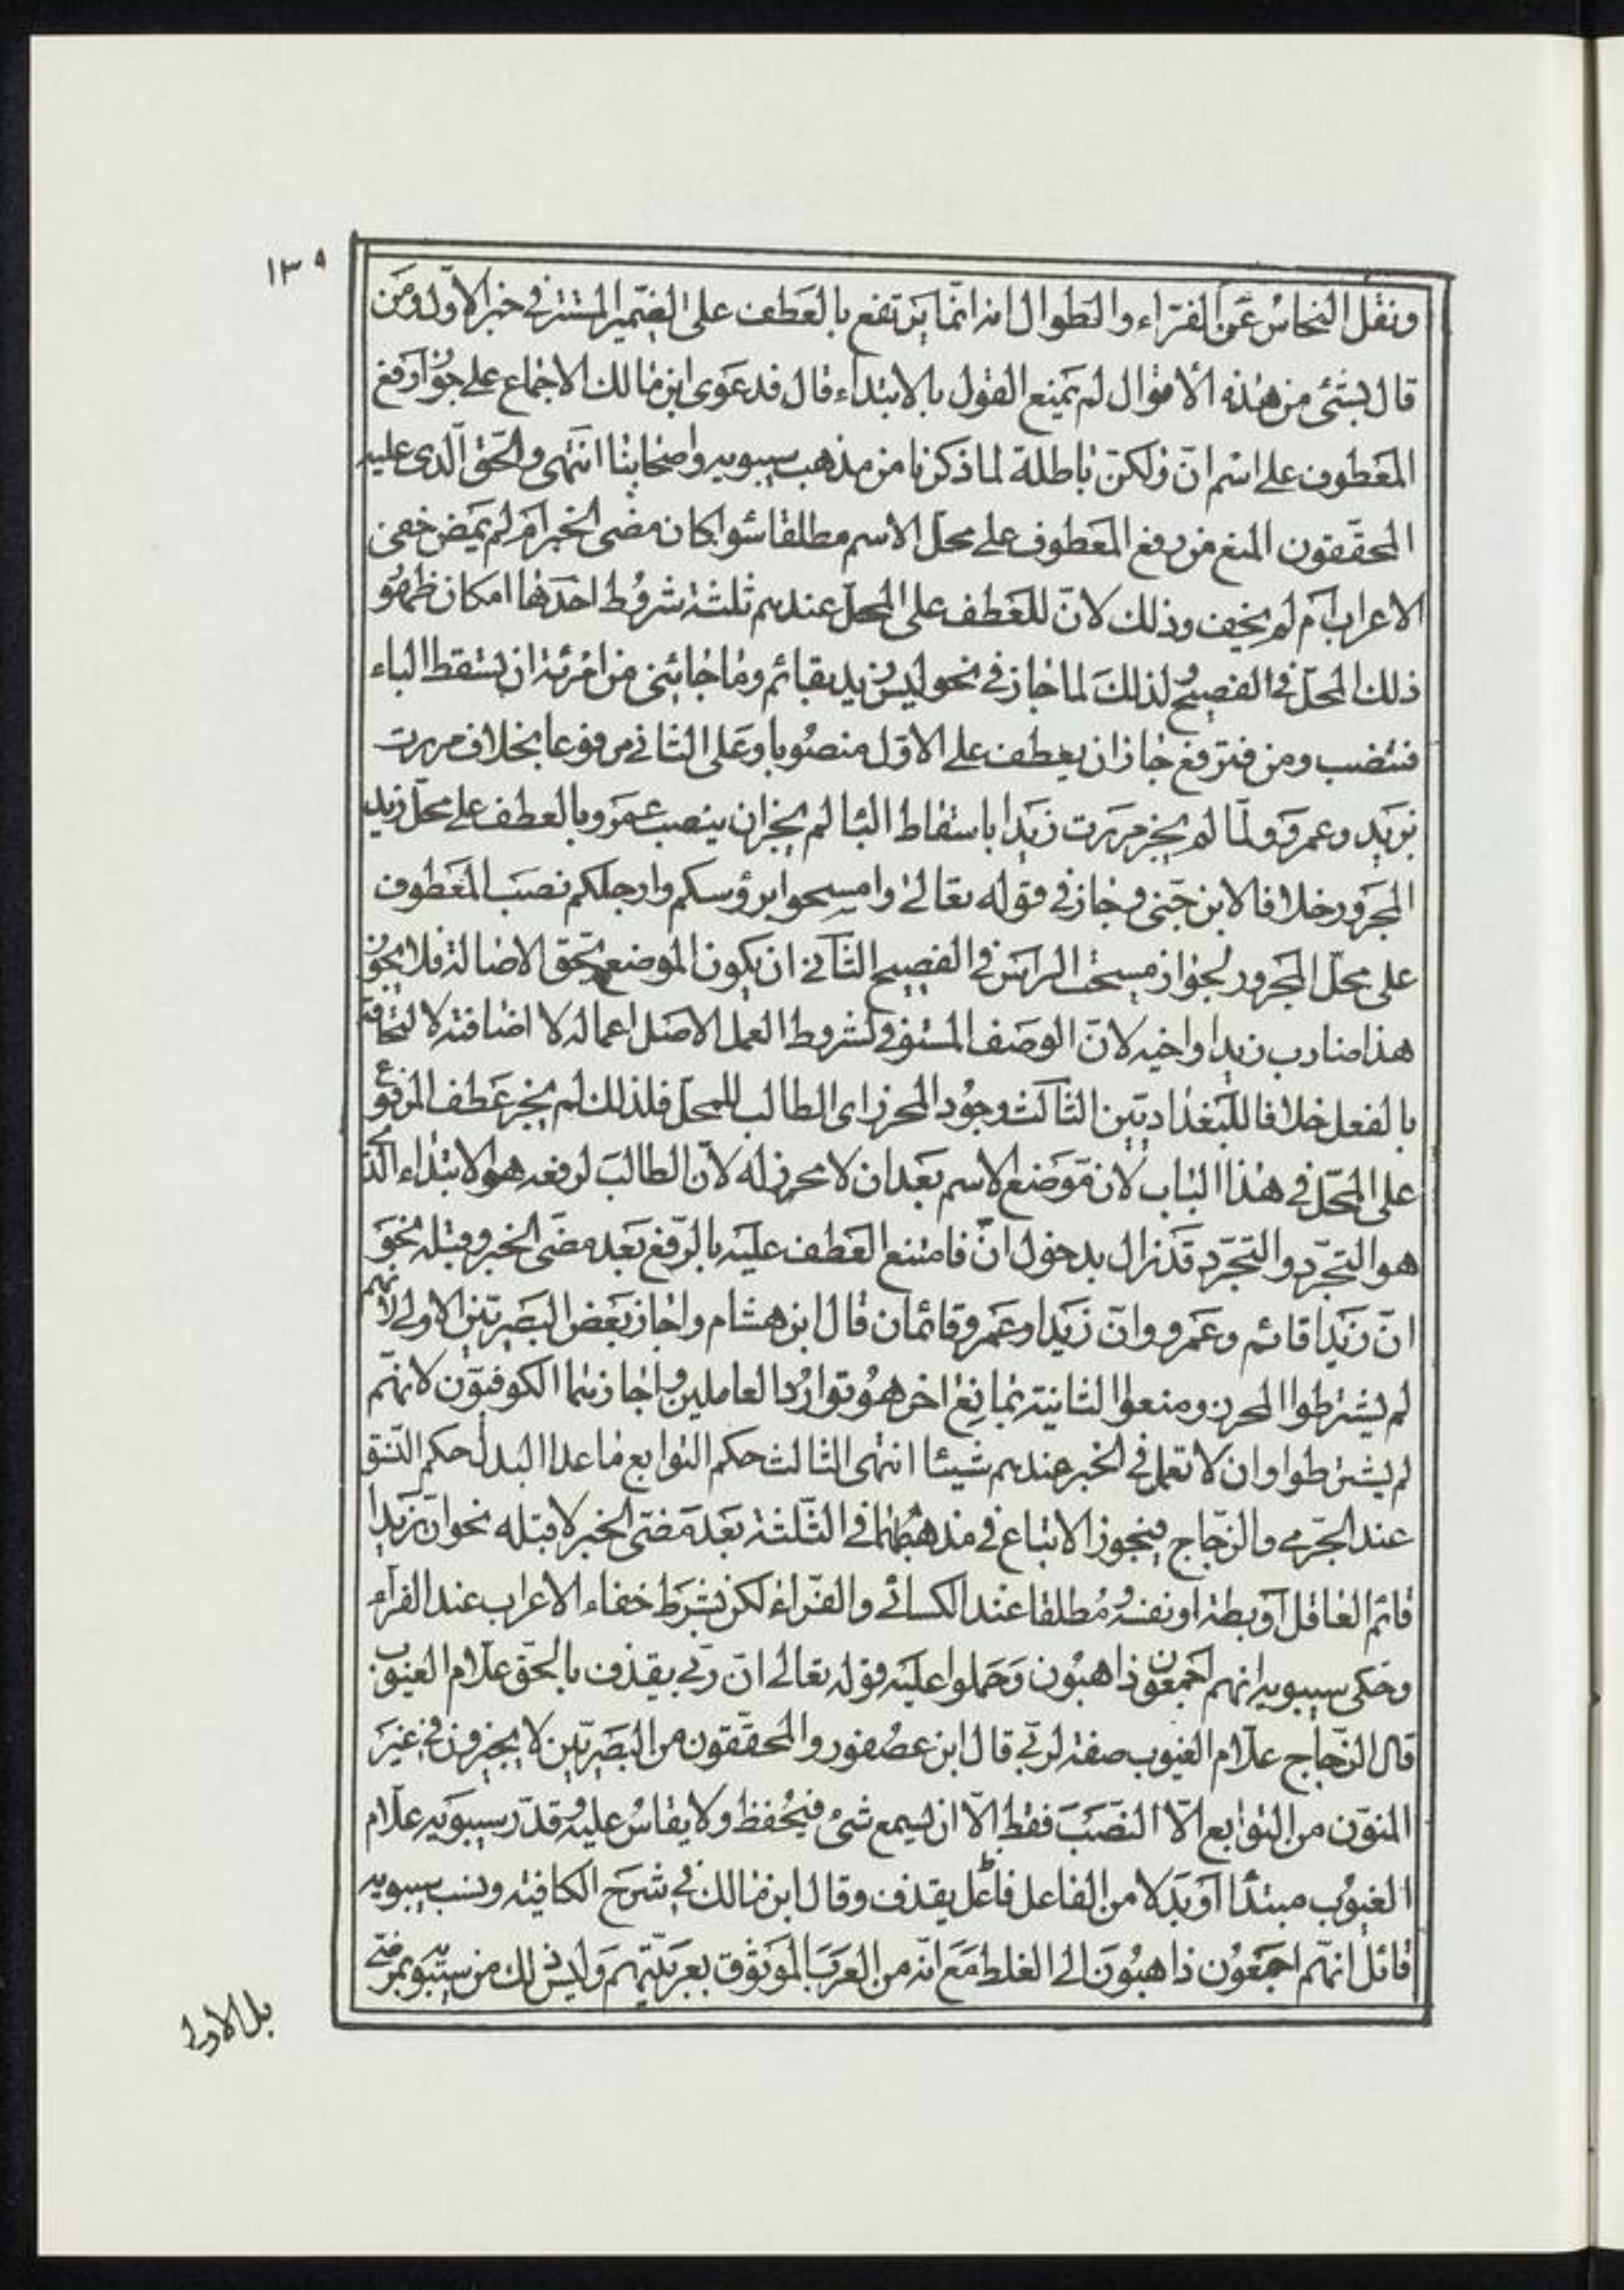 ١٣٥
ونقل النحاس عن الفراء والطوال انه انما يرتفع بالعطف على الضمير المستتر في خبر الاول ومن
قال بشئ من هذه الاقوال لم يمنع القول بالابتداء قال فدعوى ابن مالك الاجماع على جواز رفع
المعطوف على اسم انّ ولكنّ باطلة لما ذكرنا من مذهب سيبويه واصحابنا انتهى والحق الّذى عليه
المحققون المنع من رفع المعطوف على محل الاسم مطلقا سواء كان مضى الخبر ام لم يمض خفى
الاعراب ام لم يخف وذلك لانّ للعطف على المحل عندهم ثلثة شروط احدها امكان ظهو
ذلك المحل فى الفصيح لذلك لما جاز في نحو ليس زيد بقائم وما جائنى من امرئة ان يسقط الباء
فتنصب ومن فترفع جاز ان يعطف على الاول منصوبا وعلى الثانى مرفوعا بخلاف مررت
بزيد وعمرو ولمّا لم يجز مررت زيدا باسقاط البا لم يجز ان ينصب عمرو بالعطف على محل زيد
المجرور خلافا لابن جنى وجاز في قوله تعالى وامسحوا برؤسكم وارجلكم نصب المعطوف
على محل المجرور لجواز مسحت الراس في الفصيح الثّانى ان يكون الموضع بحق الاصالة فلا يجوز
هذا ضارب زيدا واخيه لانّ الوصف المستوفى لشروط العمل الاصل اعماله لا اضافته لالتحاقه
بالفعل خلافا للبغداديّين الثالث وجود المحرز اى الطالب للمحل فلذلك لم يجز عطف المرفوع
على المحلّ في هذا الباب لانّ موضع الاسم بعد ان لا محرز له لانّ الطالب لرفعه هو الابتداء الذى
هو التجرّد والتجرّد قد زال بدخول انّ فامتنع العطف عليه بالرّفع بعد مضى الخبر وقبله نحو
انّ زيدا قائم وعمرو وانّ زيدا وعمرو قائمان قال ابن هشام واجاز بعض البصريّين الاولى لانهم
لم يشترطوا المحرز ومنعوا الثانية بمانع اخر هو توارد العاملين واجازهما الكوفيّون لانهّم
لم يشترطوا وان لا تعمل في الخبر عندهم شيئا انتهى الثالث حكم التوابع ما عدا البدل حكم النّسق
عند الجّرمى والزّجاج فيجوز الاتباع في مذهبهما في الثلثة بعد مضىّ الخبر لا قبله نحو انّ زيدا
قائم العاقل او بطة او نفسه مطلقا عند الكسائى والفرّاء لكن بشرط خفاء الاعراب عند الفراء
وحكى سيبويه انهم اجمعون ذاهبون وحملوا عليه قوله تعالى انّ ربّى يقذف بالحق علّام الغيوب
قال الزجّاج علّام الغيوب صفة لربّى قال ابن عصفور والمحقّقون من البصريّين لا يجيزون في غير
المنوّن من التوابع الّا النّصب فقط الّا ان يسمع شئ فيحفظ ولا يقاس عليه وقدّر سيبويه علّام
الغيوب مبتدأ او بدلا من الفاعل فاعل يقذف وقال ابن مالك في شرح الكافية ونسب سيبويه
قائل انهّم اجمعون ذاهبون الى الغلط مع انّه من العرب الموثوق بعربيّتهم وليس ذلك من سيبويه بمرضى
بل الاولى